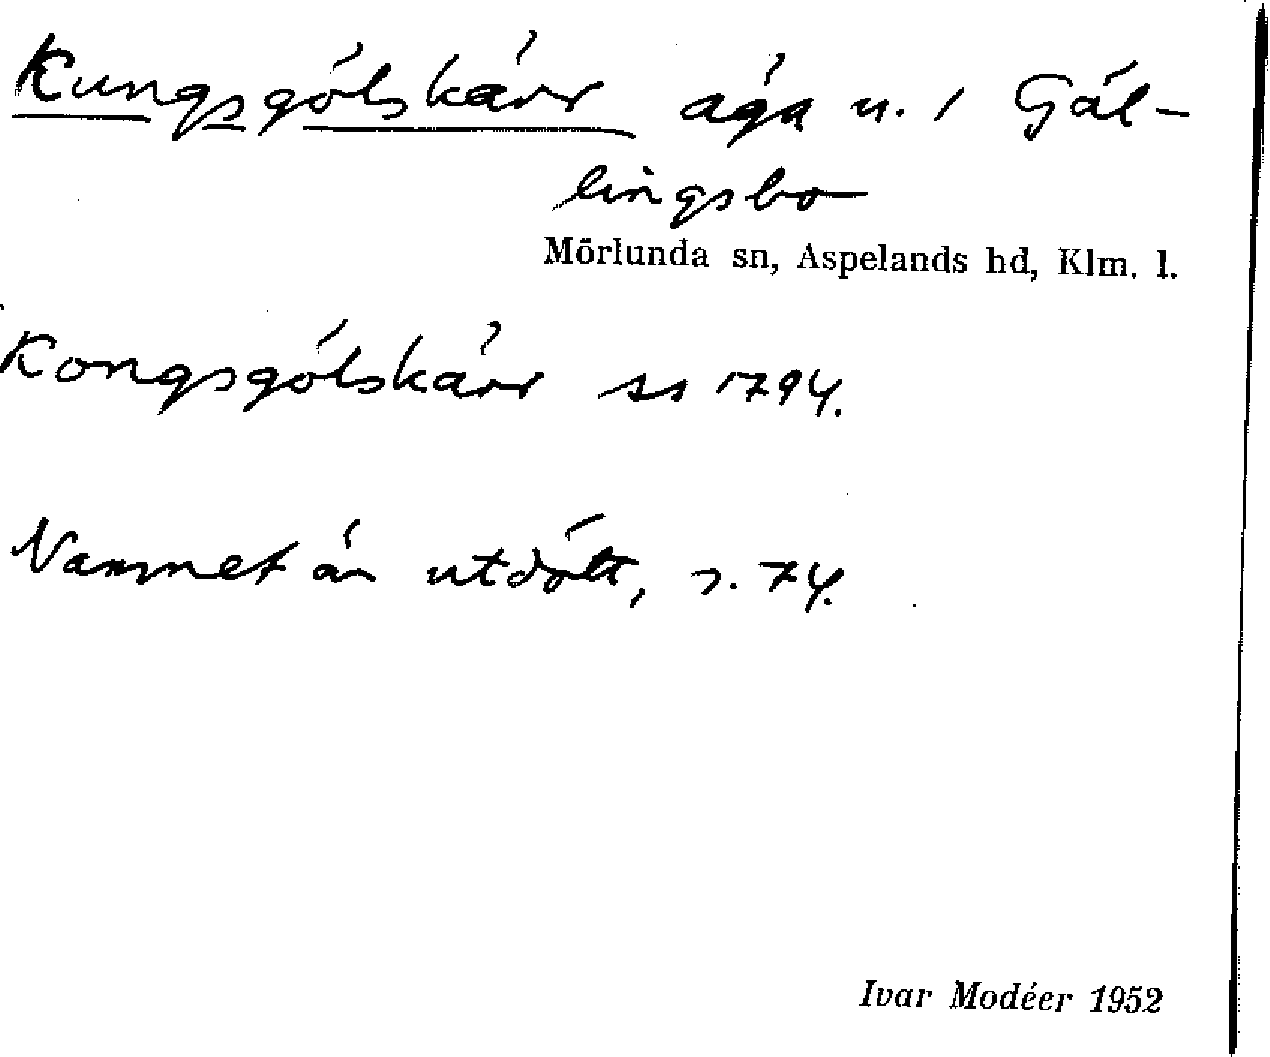 Kungsgölskärr äga u. 1 Gäl-
lingsbo
Mörlunda sn, Aspelands hd, Klm. l.
Kongsgölskärr ss 1794.
Namnet är utdött, s. 74.
Ivar Modéer 1952